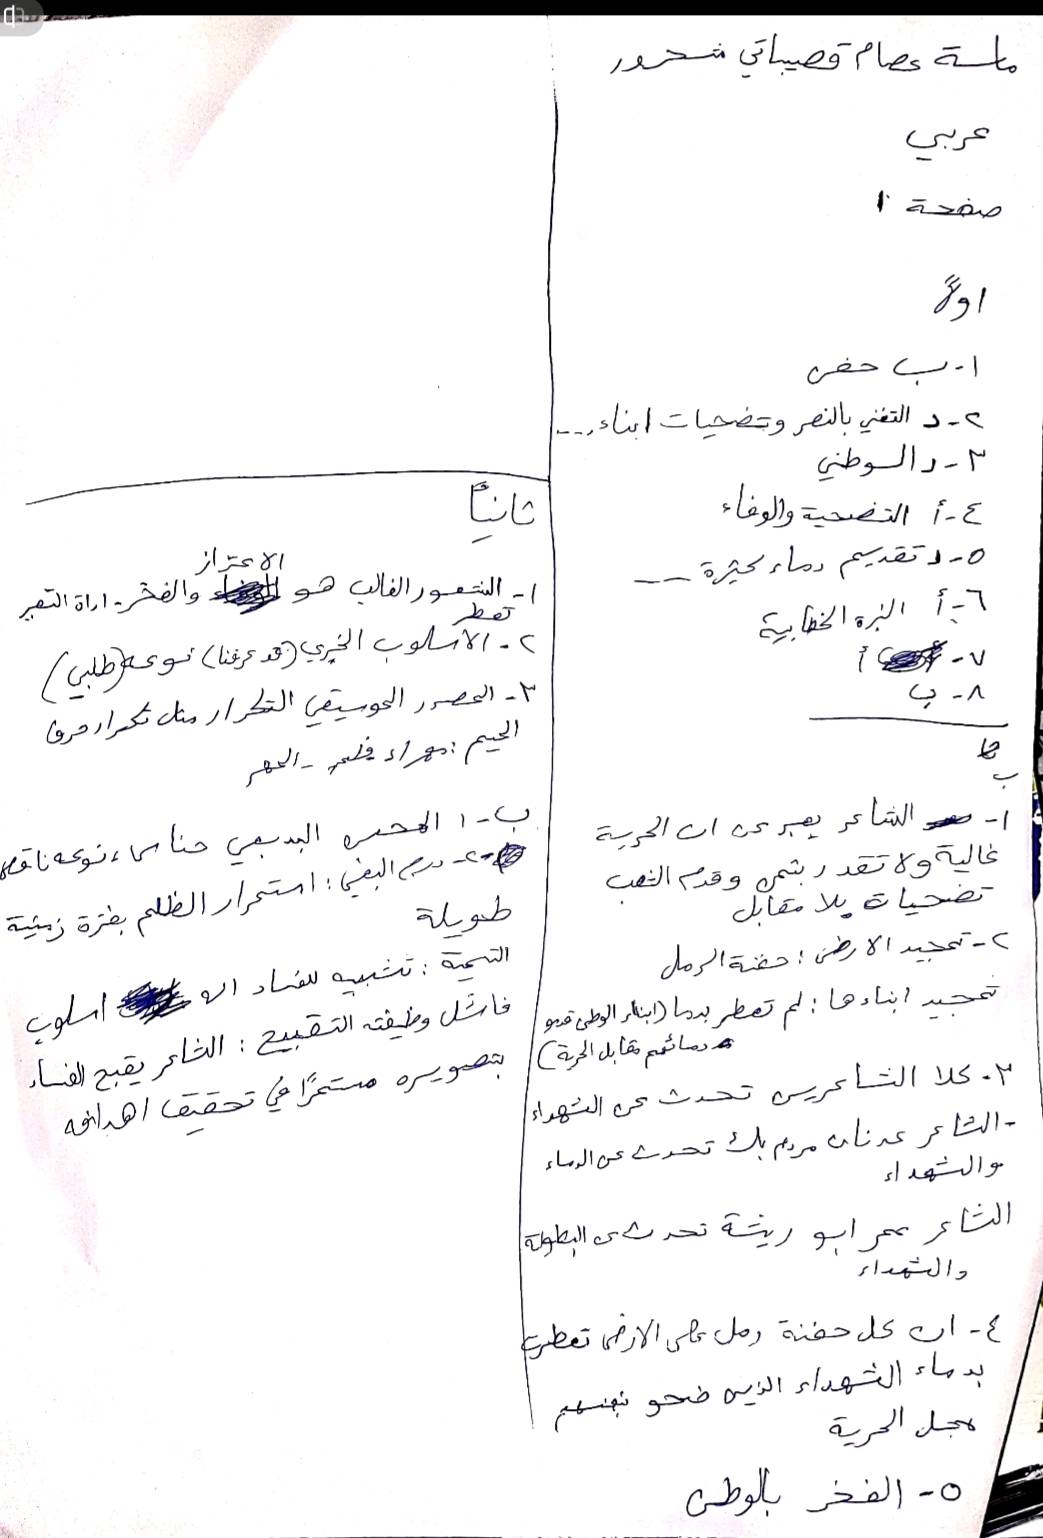 ماسة عصام قصيباتي شحرور
عربي
صفحة ١
اولاً
١- ب حفن
٢- د التغني بالنصر وتضحيات ابناء....
٣- د الوطني
٤- أ التضحية والوفاء
٥- د تقديم دماء كثيرة ---
٦- أ النبرة الخطابية
٧- أ
٨- ب
ب
١- الشاعر يعبر عن ان الحرية
غالية ولا تقدر بثمن وقدم الشعب
تضحيات بلا مقابل
٢- تمجيد الارض: حفنة الرمل
تمجيد ابناءها: لم تعطر بدما (ابناء الوطن
دمائهم مقابل الحرية)
٣- كلا الشاعرين تحدث عن الشهداء
- الشاعر عدنان مردم بك تحدث عن الدماء
والشهداء
الشاعر عمر ابو ريشة تحدث عن البطولة
والشهداء
٤- ان كل حفنة رمل على الارض تعطرت
بدماء الشهداء الذين ضحو بنفسهم
الحرية
٥- الفخر بالوطن
ثانياً
الاعتزاز
١- الشعور الغالب هو والفخر. اداة التعبير
تعطر
٢- الاسلوب الخبري (قد عرفنا) نوعه (طلبي)
٣- المصدر الموسيقي التكرار مثل تكرار حرف
الميم: مهراء فلم - المهر
ب- ١ المحسن البديعي جناس، نوعه ناقص
٢- البغي: استمرار الظلم بفترة زمنية
طويلة
القيمة: تشبيه للفساد اسلوب
فاشل وظيفته التقبيح: الشاعر يقبح الفساد
بتصويره مستمراً في تحقيق اهدافه